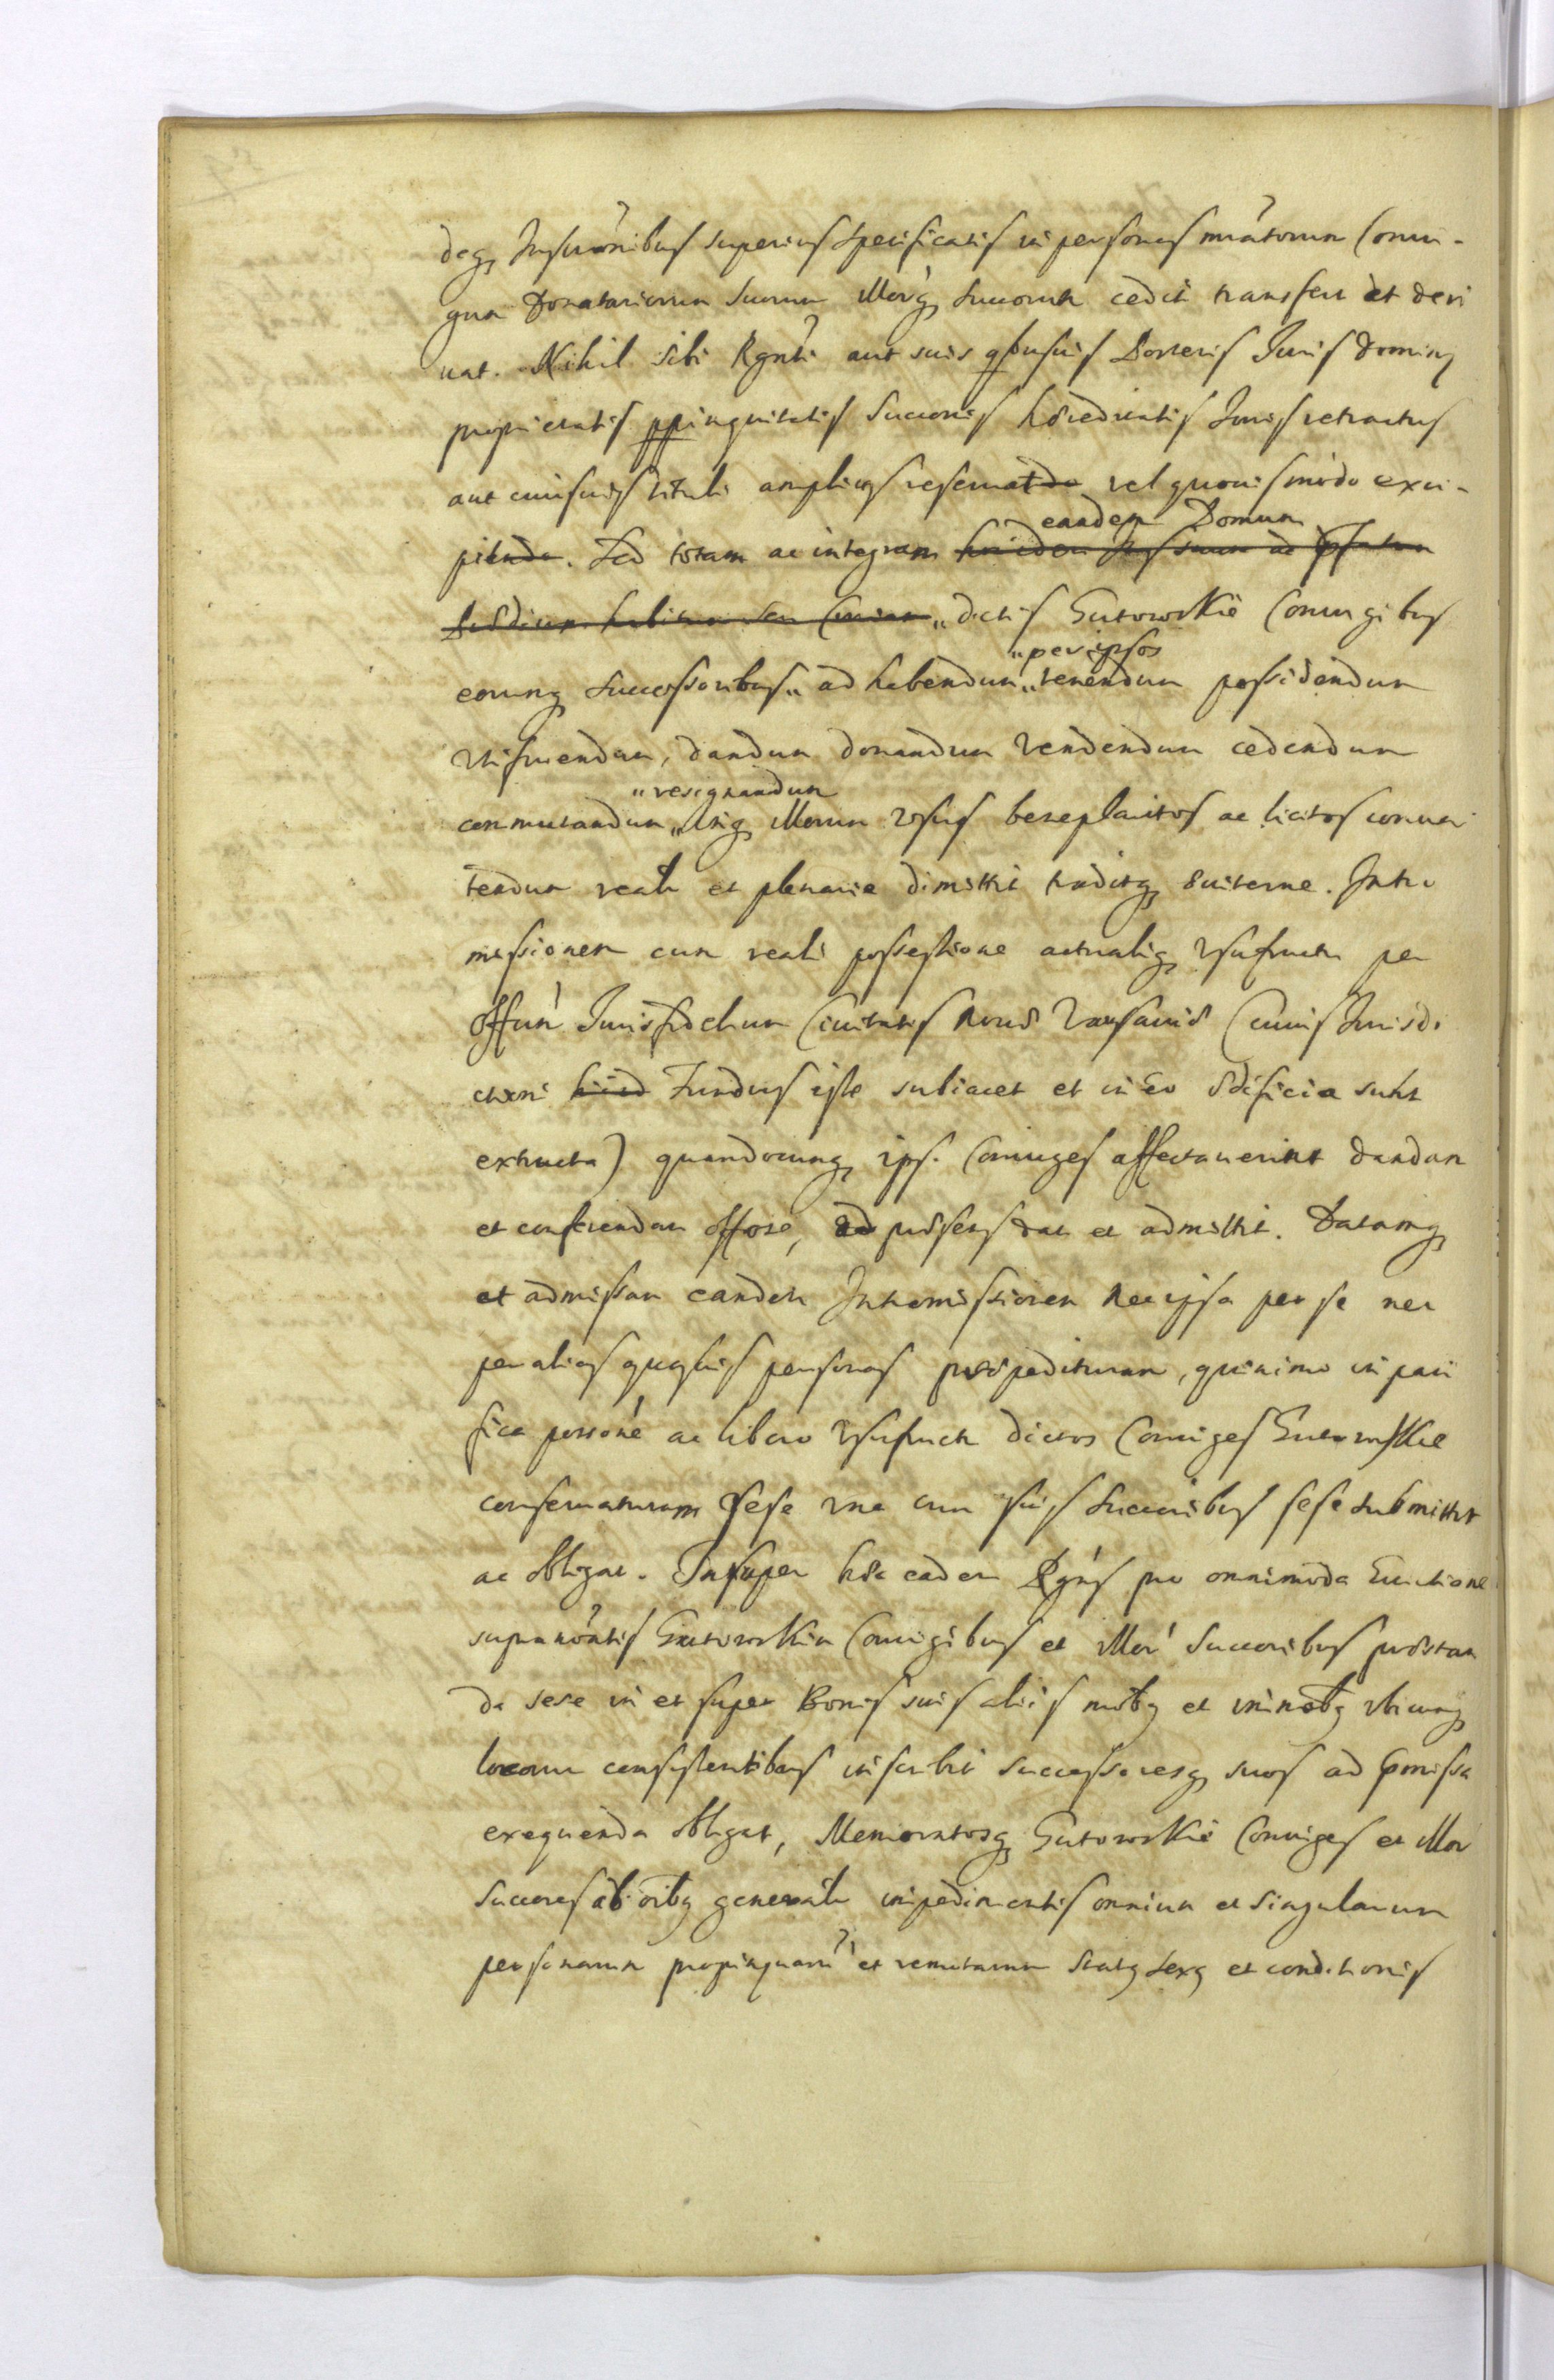 deq3 Inscrōnibus superius specificatis in personas mrātorum Coniu-
gum Donatariorum suorum illorq3 succorum cedit transfert et deri
uat. Nihil sibi Rgnti aut suis quibusuis Posteris Iuris Dominij
proprietatis ppinquitatis Succonis hæreditatis Iuris retractus
aut cuiusuis tituli amplius reseruatdo vel quouismodo exci-
piendo. Sed totam ac integram eandem Domum
dictis Gutowskie Coniugibus
eorumq3 successoribus ad habendum "per ipsos tenendum possidendum
vtifruendum, dandum donandum vendendum cedendum
commutandum "resignandum inq3 illorum vsus beneplacitos ac licitos conuer
tendum realr et plenarie dimittit traditq3 æuiterne. Intro
missionem cum reali possessione actualiq3 vsufructu per
offum Iurisfidelium Ciuitatis Nouæ Varsauiæ (cuius Iurisdi
ctioni Fundus iste subiacet et in eo ædificia sunt
extructa) quandocunq3 ips. Coniuges affectauerint dandam
et conferendam offose, ad præsens dat et admittit. Datamq3
et admissam eandem Intromissionem nec ipsa per se nec
per alias quasuis personas præpedituram, quinimo in paci
fica possoné ac libero vsufructu dictos Coniuges Gutowskie
conseruaturam sese vna cum suis succoribus sese submittit
ac obligat. Insuper hæc eadem Rgns pro omnimoda Euictione
supranoatis Gutowskim Coniugibus et illor succoribus præstan
da sese in et super Bonis suis aliis mobq3 et immobq3 vbicunq3
locorum consistentibus inscribit successoresq3 suos ad pmissa
exequenda obligat, Memoratosq3 Gutowskie Coniuges et illor
succores ab oibq3 generalr impedimentis omnium et singularum
personarum propinquaru et remotarum statq3 sexq3 et conditionis